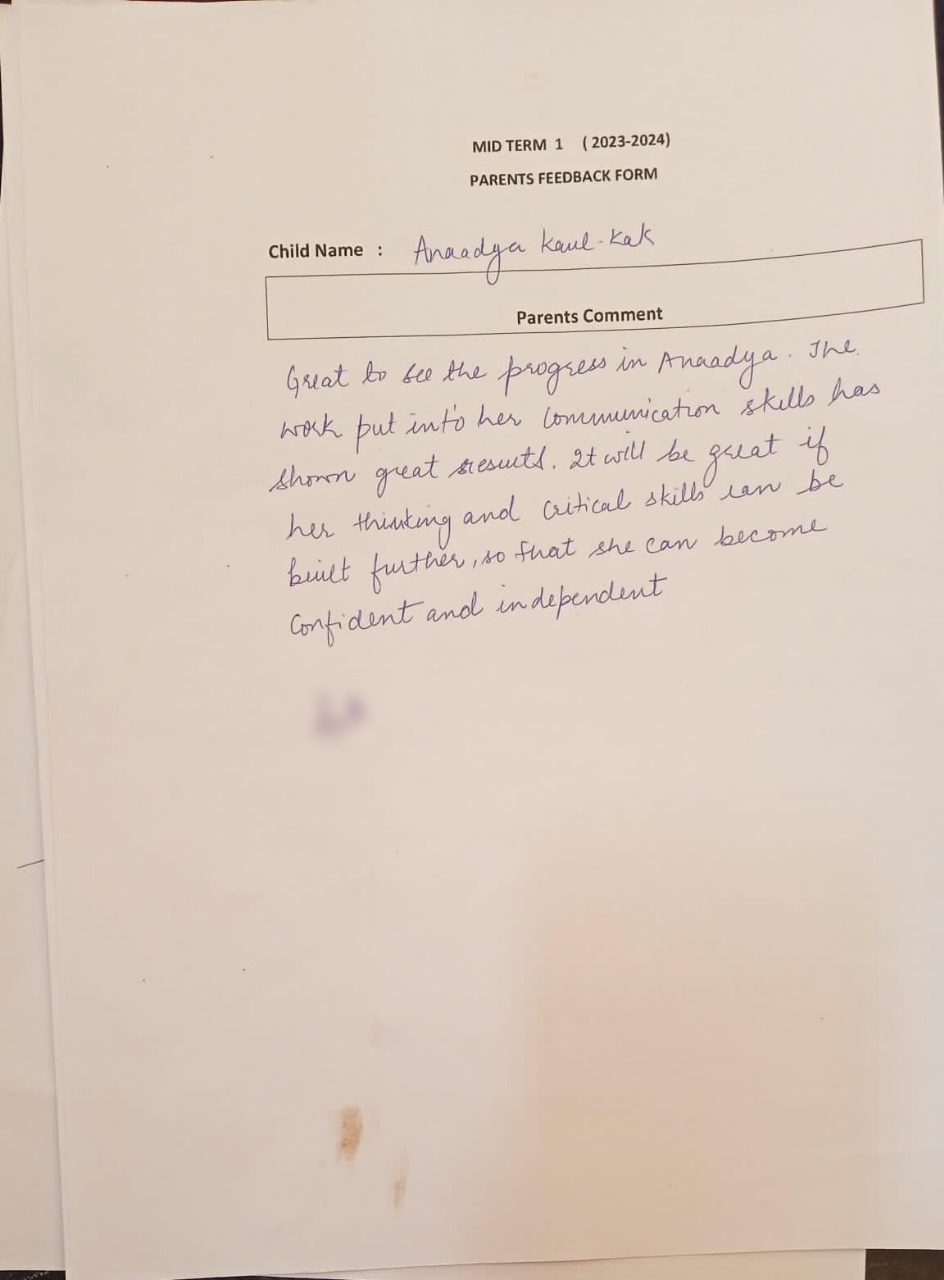 MID TERM 1 ( 2023-2024)
PARENTS FEEDBACK FORM
Child Name : Anaadya Kaul-Kak
Parents Comment
Great to see the progress in Anaadya. The
work put into her communication skills has
shown great results. It will be great if
her thinking and critical skills can be
built further, so that she can become
confident and independent